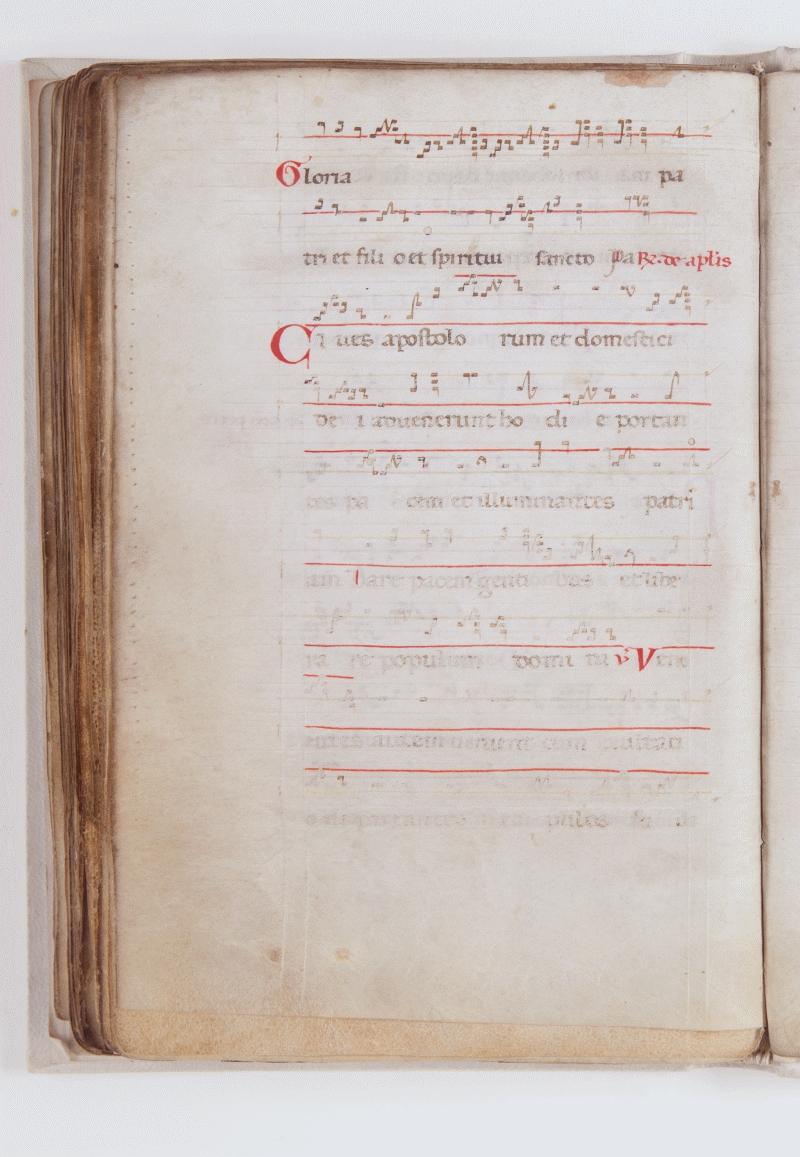 Gloria pa
tri et fili o et spiritui sancto pa R. de aplis
Ci ues apostolo rum et domestici
de i aduenerunt ho di e portan
tes pa cem et illuminantes patri
am Dare pacem genti bus et libe
ra re populum domi ni V
entes autem uenient cum
portantes